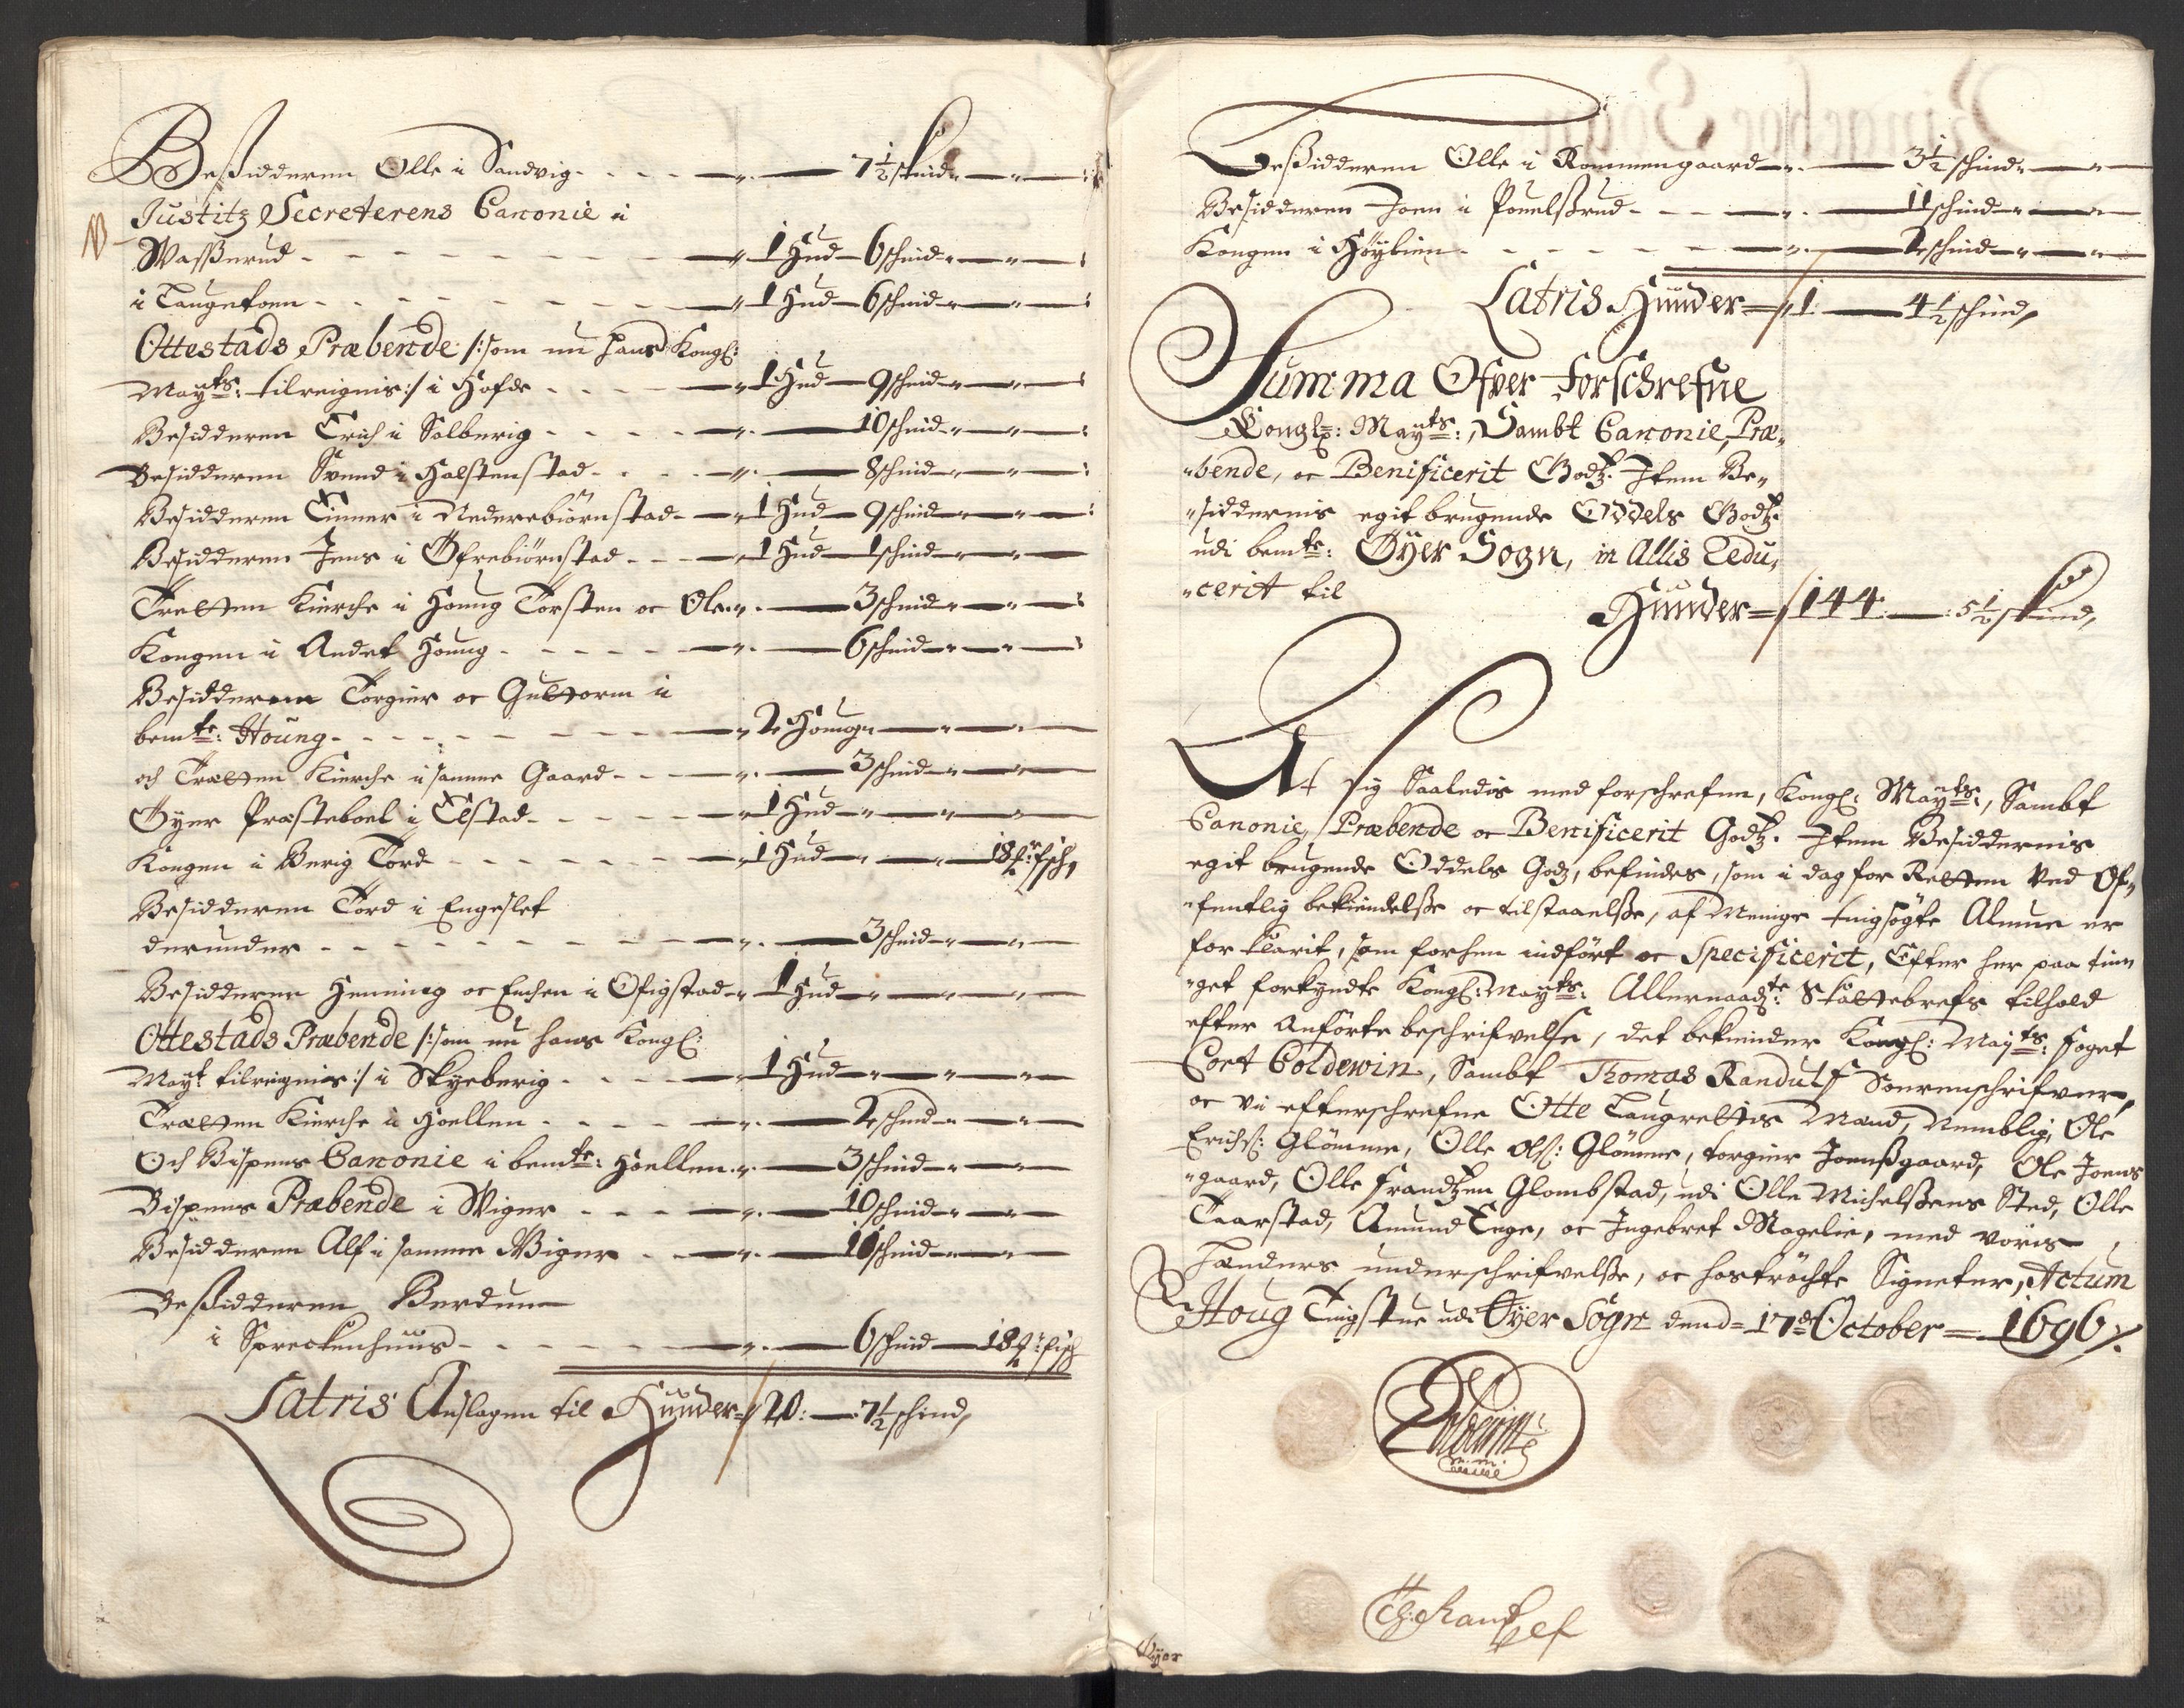 Beßidderen Olle i Sandvig - - - - " — 7½ skind " — " —
NB Justitz Secreterens Canonie i
Waßerud - - - - " 1 Hud — 6 schind " — " —
i Laugetoen - - - - " 1 Hud — 6 schind " — " —
Ottestads Præbende /: som nu hans Kongl:
Mayts: tilreignis :/ i Hofde - - - " 1 Hud — 9 schind " — " —
Besidderen Erich i Solberig - - - - " — 10 schind " — " —
Besidderen Svend i Halstenstad - - - " — 8 schind " — " —
Besidderen Einner i Nederebiørnstad - " 1 Hud — 9 schind " — " —
Besidderen Jens i Øfrebiørnstad - - - " 1 Hud — 1 schind " — " —
Tretten Kirche i Houng Torsten oc Ole " — 3 schind " — " —
Kongen i Andet Houng - - - - " — 6 schind " — " —
Besidderen Torgier oc Guttorm i
bemte: Houng - - - - " 2 Houger — " —
och Trætten Kierche i samme Gaard - - " — 3 schind " — " —
Øyer Præsteboel i Elstad - - - - " 1 Hud — " — " —
Kongen i Berig Tord - - - - " 1 Hud — " — 18 fisch
Besidderen Tord i Engeslet
derunder - - - - " — 3 schind " — " —
Besidderen Henning oc Enchen i Ofigstad " 1 Hud — " — " —
Ottestads Præbende /: som nu hans Kongl:
Mayt tilreignis :/ i Skyeberig - - - " 1 Hud — " — " —
Trætten Kierche i Hoellen - - - - " — 2 schind " — " —
Och Bispens Canonie i bemte: Hoellen " — 3 schind " — " —
Bispens Præbende i Wiger - - - " — 10 schind " — " —
Besidderen Alf i samme Wiger - - " — 10 schind " — " —
Beßidderen Berdun
i Spreckenhuus - - - - " — 6 schind — 18 fisch
Latris Anslagen til Hunder = 20: — 7½ schind,
Beßidderen Olle i Rommengaard " — 3½ schind " — " —
Besidderen Joen i Pouelßrud - - - " — 11 schind " — " —
Kongen i Høylien - - - - " — 2 schind " — " —
Latris Hunder = 1 — 4½ schind,
Summa Ofver forschrefne
Kongl: Mayts:, Sambt Canonie, Præ,
"bende, oc Benificerit Godtz. Item Be,
"siddernis egit brugende Oddels Godtz
udi bemte: Øyer Sogn, in Allis Redu,
"cerit til
Hunder = 144 — 5½ skind,
At sig Saaledis med forschrefne, Kongl: Mayts:, Sambt
Canonie, Præbende oc Benificerit Godtz. Item Besiddernis
egit brugende Oddels Godz, befindes, som i dag for Retten Ved Of,
"fentlig bekiendelße oc tilstaaelße, af Menige tingsøgte Almue er
for klarit, som forhen indført oc Specificerit, Efter her paa tin,
"get forkyndte Kongl: Mayts: Allernaadte: Skattebrefs tilhold
efter anførte beschrifvelse, det bekiender Kongl: Mayts: foget
Cort Coldewin, Sambt Thomas Randulf Sorenschrifver,
oc vi efterschrefne Otte Laugrettis Mænd, Nemblig, Ole
Erichs: Glomme, Olle Ols: Glomme, torgier Joenßgaard, Ole Joens
"gaard, Olle frandtzen Glombstad, udi Olle Michelßens Sted, Olle
Taarstad, Amund Enge, oc Ingebret Magelie, med voris
Hænders underschrifvelße, oc hostrøchte Signeter, Actum
Houg Tingstue udi Øyer Sogn dend = 17de October = 1696 /.
Coldewin
m.m.
Th: Randulf
Øyer